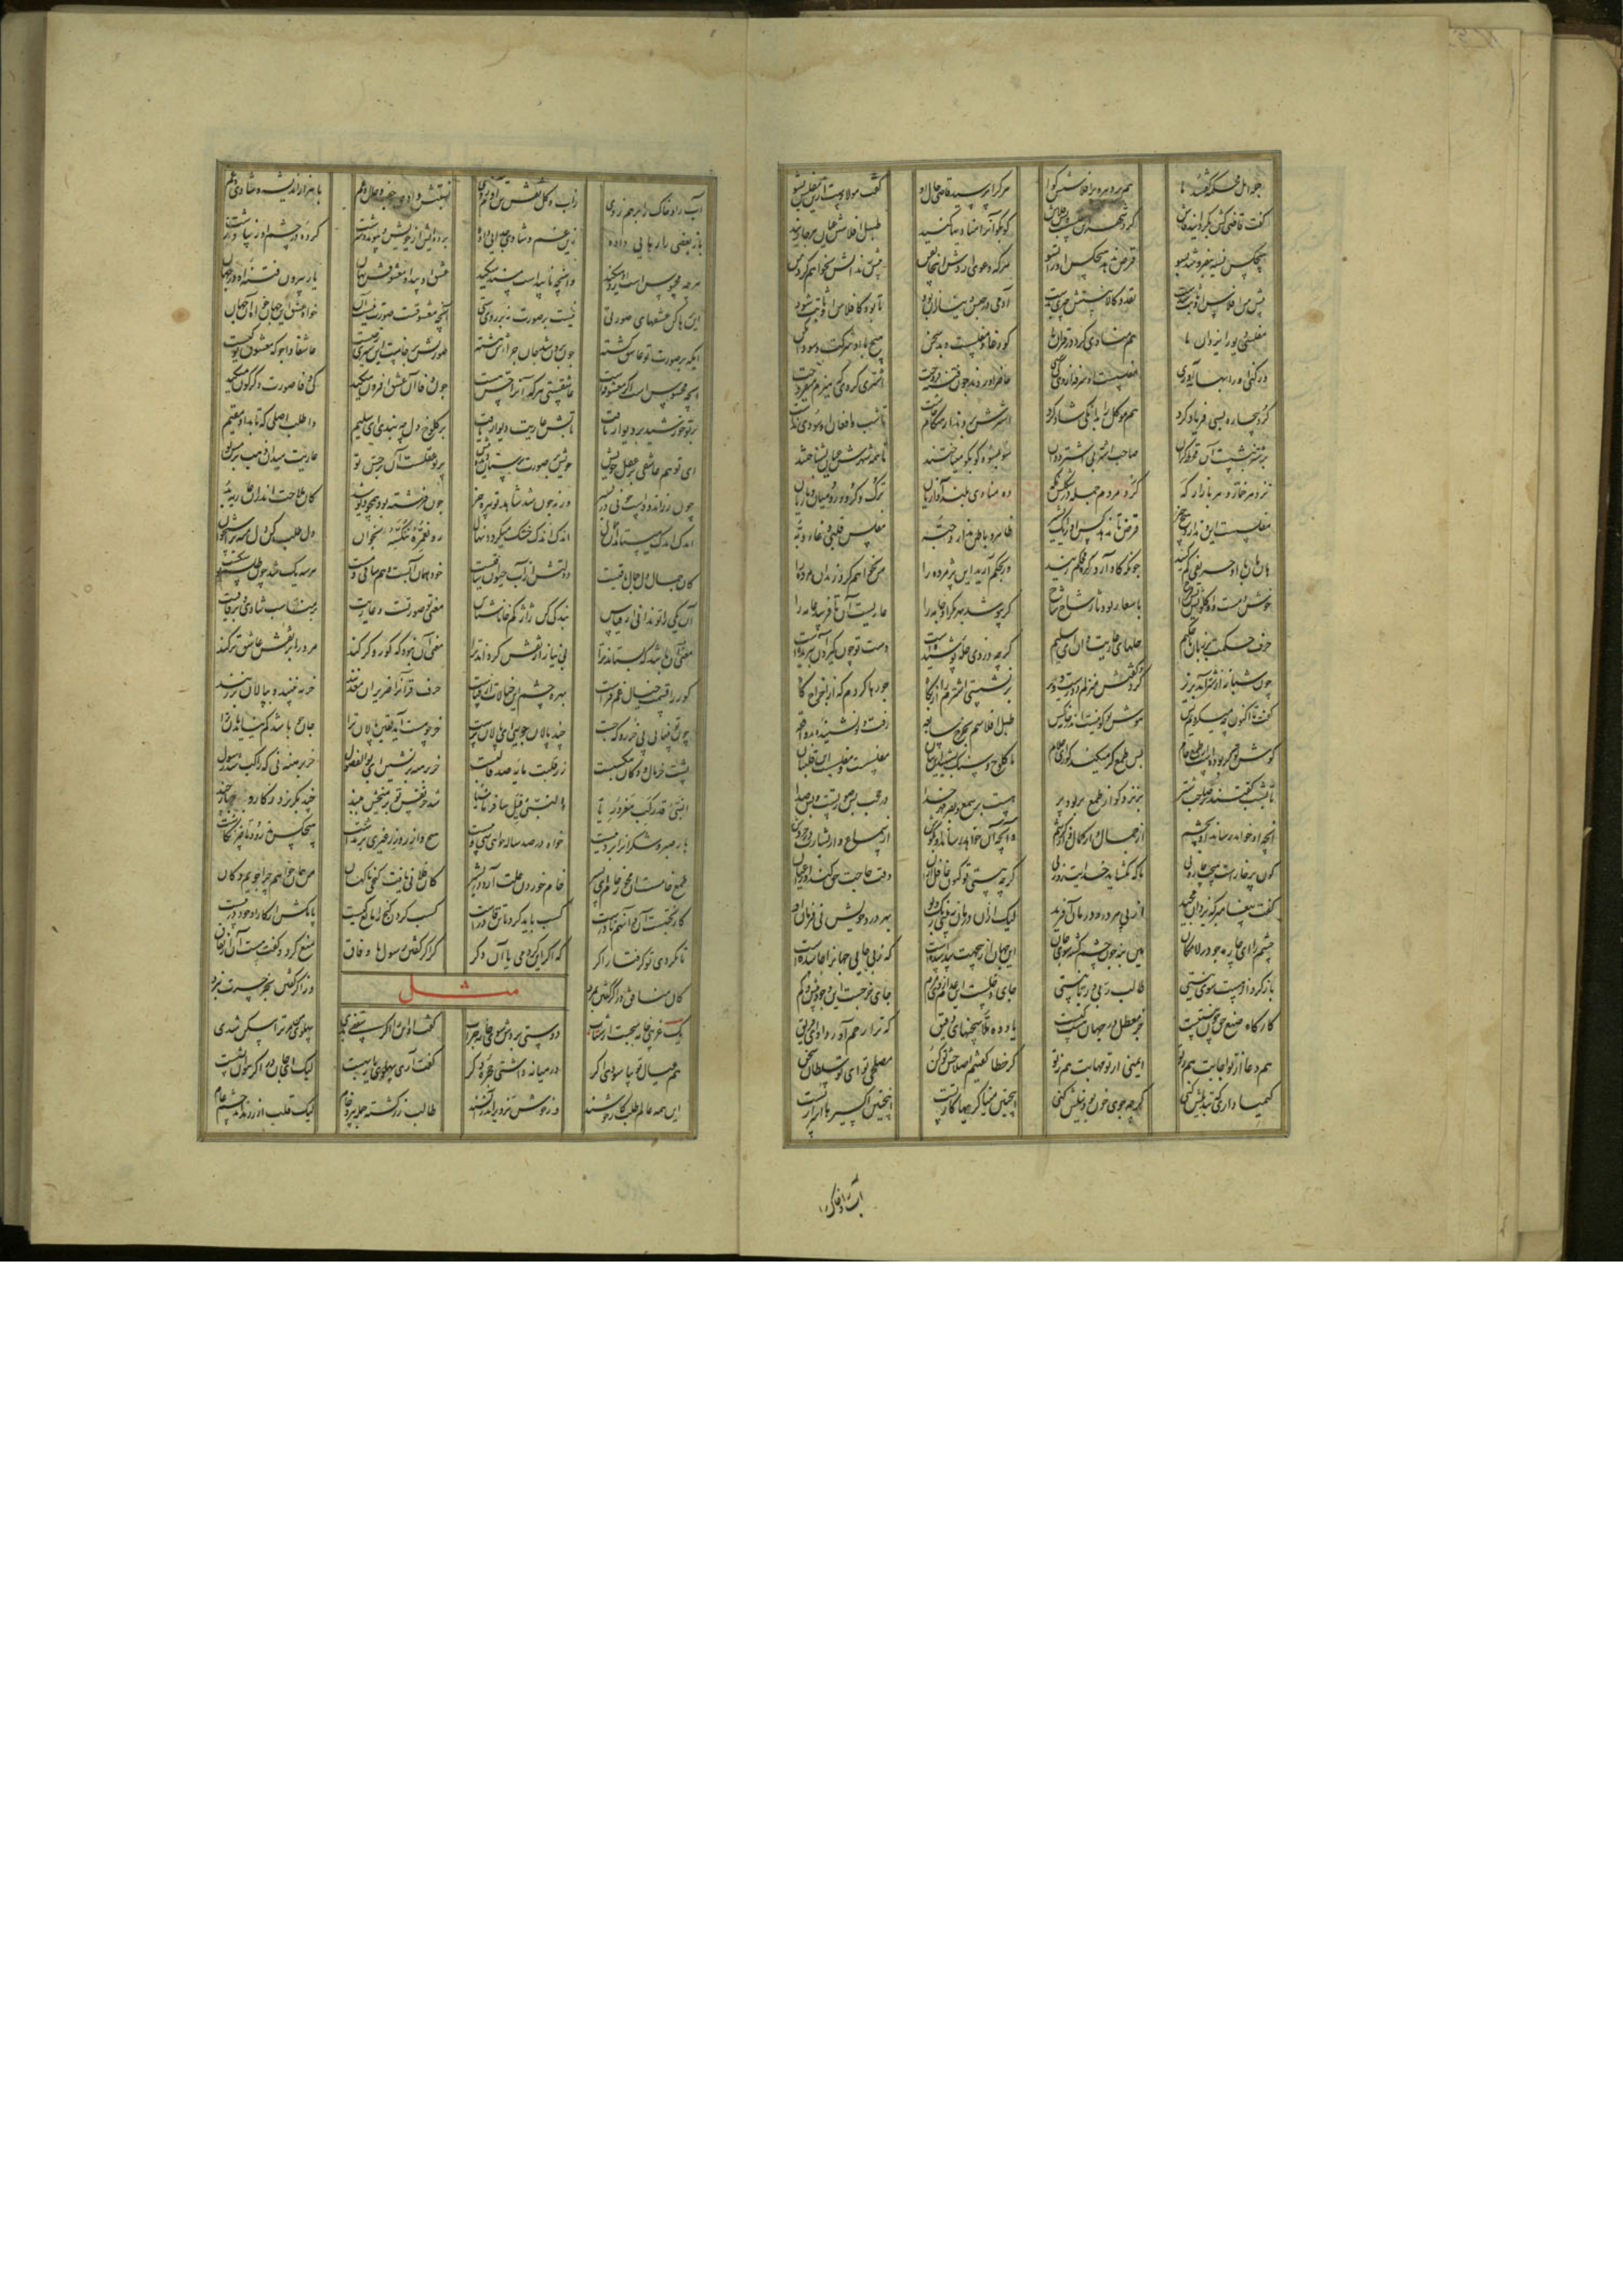 جمله اهل محکمه گفتند ما هم بر ادبار و بر افلاسش گوا هر کرا پرسید قاضی حال او گفت مولا دست ازین مفلس بشو
گفت قاضی کش بگردانید فاش گرد شهر این مفلس است و بس قلاش کو بکو او را مناداها کنید طبل افلاسش عیان هر جا زنید
هیچکس نسیه بنفروشد بدو قرض ندهد هیچکس او را تسو هر که دعوی آردش اینجا بفن بیش زندانش نخواهم کرد من
پیش من افلاس او ثابت شدست نقد و کالا نیستش چیزی بدست آدمی در حبس دنیا زان بود تا بود کافلاس او ثابت شود
مفلسی دیو را یزدان ما هم منادی کرد در قرآن ما کو دغا و مفلس است و بد سخن
حاضر آوردند چون فتنه فروخت اشتر کردی که هیزم میفروخت
کرد بیچاره بسی فریاد کرد هم موکل را بدانگی شاد کرد اشترش بردند از هنگام چاشت تا شب و افغان او سودی نداشت
بر شتر بنشست آن قحط گران صاحب اشتر پی اشتر دوان سو بسو و کو بکو میتاختند تا همه شهرش عیان بشناختند
نزد هر حمام و هر بازارگه کرد مردم جمله در شکلش نگه ده منادی گر بلند آوازیان ترک و کرد و رومیان و تازیان
مفلس است این و ندارد هیچ چیز قرض تا ندهد کس او را یک پشیز ظاهر و باطن ندارد حبه مفلسی قلبی دغایی دبه
هان و هان با او حریفی کم کنید چونکه گاو آرد گره محکم کنید ور بحکم آرید این پژمرده را من نخواهم کرد زندان مرده را
خوش دمست او و گلویش بس فراخ با شعار نو دثار شاخ شاخ گر بپوشد بهر مکر آن جامه را عاریه است آن تا فریبد عامه را
حرف حکمت بر زبان ناحکیم حلهای عاریت دان ای سلیم گرچه دزدی حله پوشیده است دست تو چون گیرد آن ببریده دست
چون شبانه از شتر آمد بزیر کرد گفتش منزلم دورست و دیر بر نشستی اشترم را از پگاه جو رها کردم کم از اخراج کاه
گفت تا اکنون چه میکردیم پس هوش تو کو نیست اندر خانه کس طبل افلاسم بچرخ سابعه رفت و تو نشنیده واقعه
گوش تو پر بوده است از طمع خام پس طمع کر میکند کور ای غلام تا کلوخ و سنگ بشنید این بیان مفلس است و مفلس است این قلتبان
تا بشب گفتند و در صاحب شتر بر نزد کو از طمع پر بود پر هست بر سمع و بصر مهر خدا در حجب بس صورتست و بس صدا
آنچه او خواهد رساند آن بچشم از جمال و از کمال و از کرشم و آنچه او خواهد رساند آن بگوش از سماع و از بشارت وز خروش
کون پر چاره است و هیچت چاره نی تا که نگشاید خدایت روزنی گرچه هستی تو کنون غافل از آن وقت حاجت حق کند آنرا عیان
گفت پیغمبر که یزدان مجید از پی هر درد درمان آفرید لیک از آن درمان نبینی رنگ و بو بهر درد خویش بی فرمان او
چشم را ای چاره جو در لامکان هین بنه چون چشم کشته سوی جان این جهان از بی جهت پیدا شدست که ز بی جایی جهان را جا شدست
باز گرد از هست سوی نیستی طالب ربی و ربانیستی جای دخلست این عدم از وی مرم جای خرجست این وجود بیش و کم
کارگاه صنع حق چون نیستیست جز معطل در جهان هست کیست یاد ده ما را سخنهای دقیق که ترا رحم آورد آن ای رفیق
هم دعا از تو اجابت هم ز تو ایمنی از تو مهابت هم ز تو گر خطا گفتیم اصلاحش تو کن مصلحی تو ای تو سلطان سخن
کیمیا داری که تبدیلش کنی گرچه جوی خون بود نیلش کنی اینچنین میناگریها کار تست اینچنین اکسیرها اسرار تست
آب را و خاک را
آب را و خاک را بر هم زدی ز آب و گل نقش تن آدم زدی نسبتش دادی و جفت و خال و عم با هزار اندیشه و شادی و غم
باز بعضی را رهایی داده زین غم و شادی جدایی داده برده از خویش و پیوند و سرشت کرده در چشم او هر خوب زشت
هر چه محسوس است او رد میکند و آنچه ناپیداست مسند میکند عشق او پیدا و معشوقش نهان یار بیرون فتنه او در جهان
این رها کن عشقهای صورتی نیست بر صورت نه بر روی ستی آنچه معشوقست صورت نیست آن خواه عشق این جهان خواه آن جهان
آنچه بر صورت تو عاشق گشته چون برون شد جان چرایش هشته صورتش بر جاست این سیری ز چیست عاشقا واجو که معشوق تو کیست
آنچه محسوس است اگر معشوقه است عاشقستی هر که او را حس هست چون وفا آن عشق افزون میکند کی وفا صورت دگرگون میکند
پرتو خورشید بر دیوار تافت تابش عاریتی دیوار یافت بر کلوخی دل چه بندی ای سلیم واطلب اصلی که تابد او مقیم
ای که تو هم عاشقی بر عقل خویش خویش بر صورت پرستان دیده بیش پرتو عقلست آن بر حس تو عاریت میدان ذهب بر مس تو
چون زر اندودست خوبی در بشر ورنه چون شد شاهد تو پیر خر چون فرشته بود همچون دیو شد کان ملاحت اندرو عاریه بد
اندک اندک میستانند آن جمال اندک اندک خشک میگردد نهال رو نعمره ننکسه بخوان دل طلب کن دل منه بر استخوان
کان جمال دل جمال باقیست دولتش از آب حیوان ساقیست خود هم او آبست و هم ساقی و مست هر سه یک شد چون طلسم تو شکست
آن یکی را تو ندانی از قیاس بندگی کن ژاژ کم خا ناشناس معنی تو صورتست و عاریت بر مناسب شادی و بر قافیت
معنی آن باشد که بستاند ترا بی نیاز از نقش گرداند ترا معنی آن نبود که کور و کر کند مرد را بر نقش عاشقتر کند
کور را قسمت خیال غم فزاست بهره چشم این خیالات فناست حرف قرآن را ضریران معدنند خر نبینند و بپالان بر زنند
چون تو بینایی پی خر رو که جست چند پالان دوزی ای پالان پرست خر چو هست آید یقین پالان ترا جان چو باشد کم نیاید نان ترا
پشت خر دکان و مال و مکسبست در قلبت مایه صد قالبست خر برهنه بر نشین ای بوالفضول خر برهنه نی که راکب شد رسول
النبی قد رکب معروریا والنبی قیل سافر ماشیا شد خر نفس تو بر میخیش بند چند بگریزد ز کار و بار چند
بار صبر و شکر او را بردنیست خواه در صد سال و خواهی سی و بیست هیچ وازر وزر غیری بر نداشت هیچکس ندرود تا چیزی نکاشت
طمع خامست آن مخور خام ای پسر خام خوردن علت آرد در بشر کان فلانی یافت گنجی ناگهان من همان خواهم چه کار و چه دکان
کار بختست آن و آن هم نادرست کسب باید کرد تا تن قادرست کسب کردن گنج را مانع کیست پا مکش از کار آن خود در پیست
تا نگردی تو گرفتار اگر که اگر این کردمی یا آن دگر کز اگر گفتن رسول با وفاق منع کرد و گفت هست آن از نفاق
کان منافق در اگر گفتن بمرد وز اگر گفتن بجز حسرت نبرد
مثل
یک غریبی خانه میجست از شتاب دوستی بردش سوی خانه خراب گفت او این را اگر سقفی بدی پهلوی من مر ترا مسکن شدی
هم عیال تو بیاسودی اگر در میانه داشتی حجره دگر گفت آری پهلوی یاران بهست لیک ای جان در اگر نتوان نشست
این همه عالم طلبکار خوشند وز خوش تزویر اندر آتشند طالب زر گشته جمله پیر و خام لیک قلب از زر نداند چشم عام